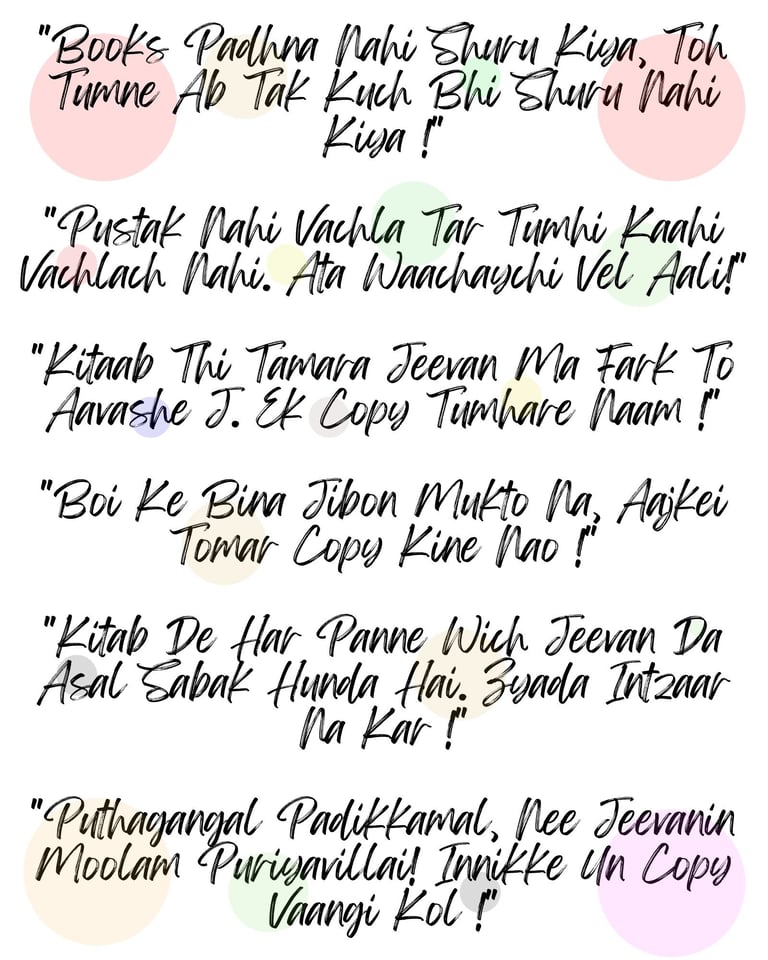 "Books Padhna Nahi Shuru Kiya, Toh
Tumne Ab Tak Kuch Bhi Shuru Nahi
Kiya !"
"Pustak Nahi Vachla Tar Tumhi Kaahi
Vachlach Nahi. Ata Waachaychi Vel Aali!"
"Kitaab Thi Tamara Jeevan Ma Fark To
Aavashe J. Ek Copy Tumhare Naam !"
"Boi Ke Bina Jibon Mukto Na, Aajkei
Tomar Copy Kine Nao !"
"Kitab De Har Panne Wich Jeevan Da
Asal Sabak Hunda Hai. Zyada Intzaar
Na Kar !"
"Puthagangal Padikkamal, Nee Jeevanin
Moolam Puriyavillai! Innikke Un Copy
Vaangi Kol !"